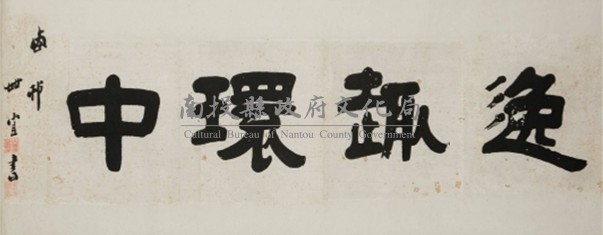 逸趣環中
書
南投縣政府文化局
Cultural Bureau of Nantou County Government